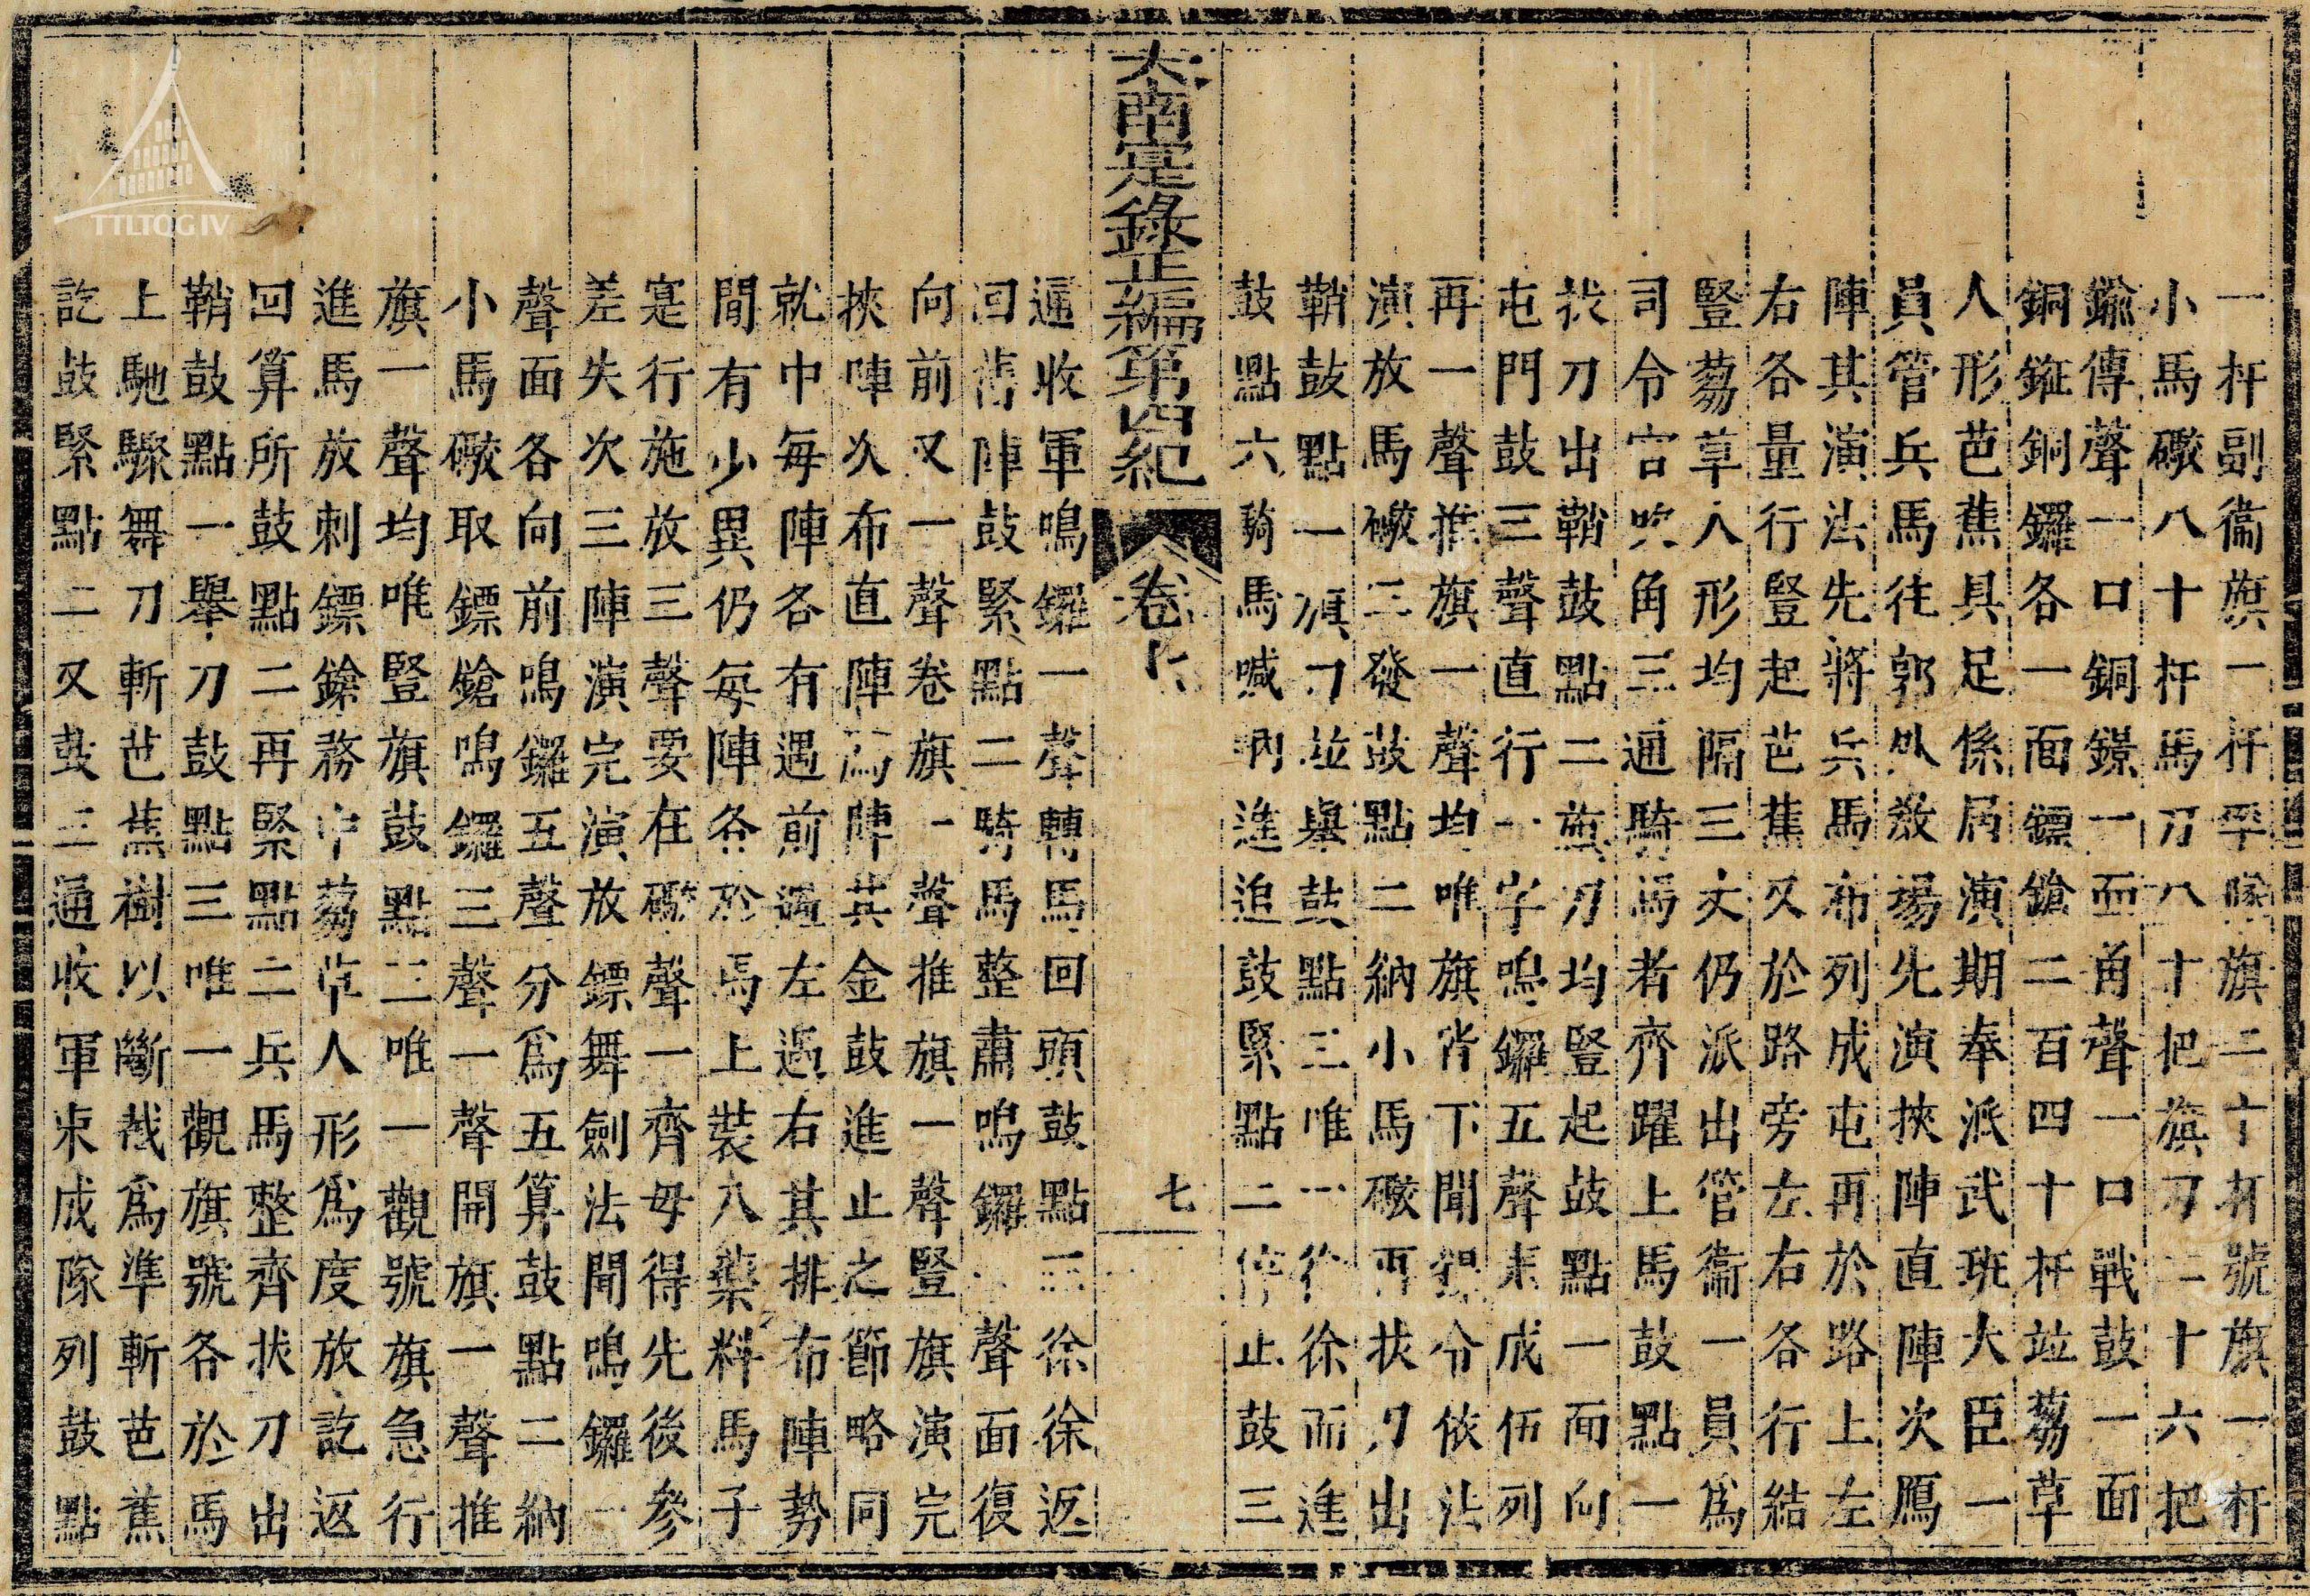 一杆副衞旗一杆率隊旗二十杆號旗一杆
小馬礮八十杆馬刀八十把旗刀二十六把
鍮傳聲一口銅鐛一面角聲一口戰鼓一面
銅鉦銅鑼各一面鏢鎗二百四十杆竝芻草
人形芭蕉具足係屆演期奉派武班大臣一
員管兵馬往郭外教場先演挾陣直陣次鴈
陣其演法先將兵馬布列成屯再於路上左
右各量行豎起芭蕉又於路旁左右各行結
豎芻草人形均隔三丈仍派出管衞一員爲
司令官吹角三通騎馬者齊躍上馬鼓點一
找刀出鞘鼓點二旗刀均豎起鼓點一面向
屯門鼓三聲直行一字鳴鑼五聲束成伍列
再一聲推旗一聲均唯旗背下聞號令依法
演放馬礮三發鼓點二納小馬礮再找刀出
鞘鼓點一旗刀竝舉鼓點三唯一徐徐而進
鼓點六騎馬喊吶進追鼓緊點二停止鼓三
大南寔錄正編第四紀
卷七
七
通收軍鳴鑼一聲轉馬回頭鼓點三徐徐返
回淸陣鼓緊點二騎馬整肅鳴鑼一聲面復
向前又一聲卷旗一聲推旗一聲豎旗演完
挾陣次布直陣鴈陣其金鼓進止之節略同
就中每陣各有遇前遇左遇右其排布陣勢
間有少異仍每陣各於馬上裝入藥料馬子
寔行施放三聲要在礮聲一齊毋得先後參
差失次三陣演完演放鏢舞劍法聞鳴鑼一
聲面各向前鳴鑼五聲分爲五算鼓點二納
小馬礮取鏢鎗鳴鑼三聲一聲開旗一聲推
旗一聲均唯豎旗鼓點二唯一觀號旗急行
進馬放刺鏢鎗務中芻草人形爲度放訖返
回算所鼓點二再緊點二兵馬整齊狀刀出
鞘鼓點一舉刀鼓點三唯一觀旗號各於馬
上馳驟舞刀斬芭蕉樹以斷截爲準斬芭蕉
訖鼓緊點二又鼓三通收軍束成隊列鼓點
TTLTQG IV